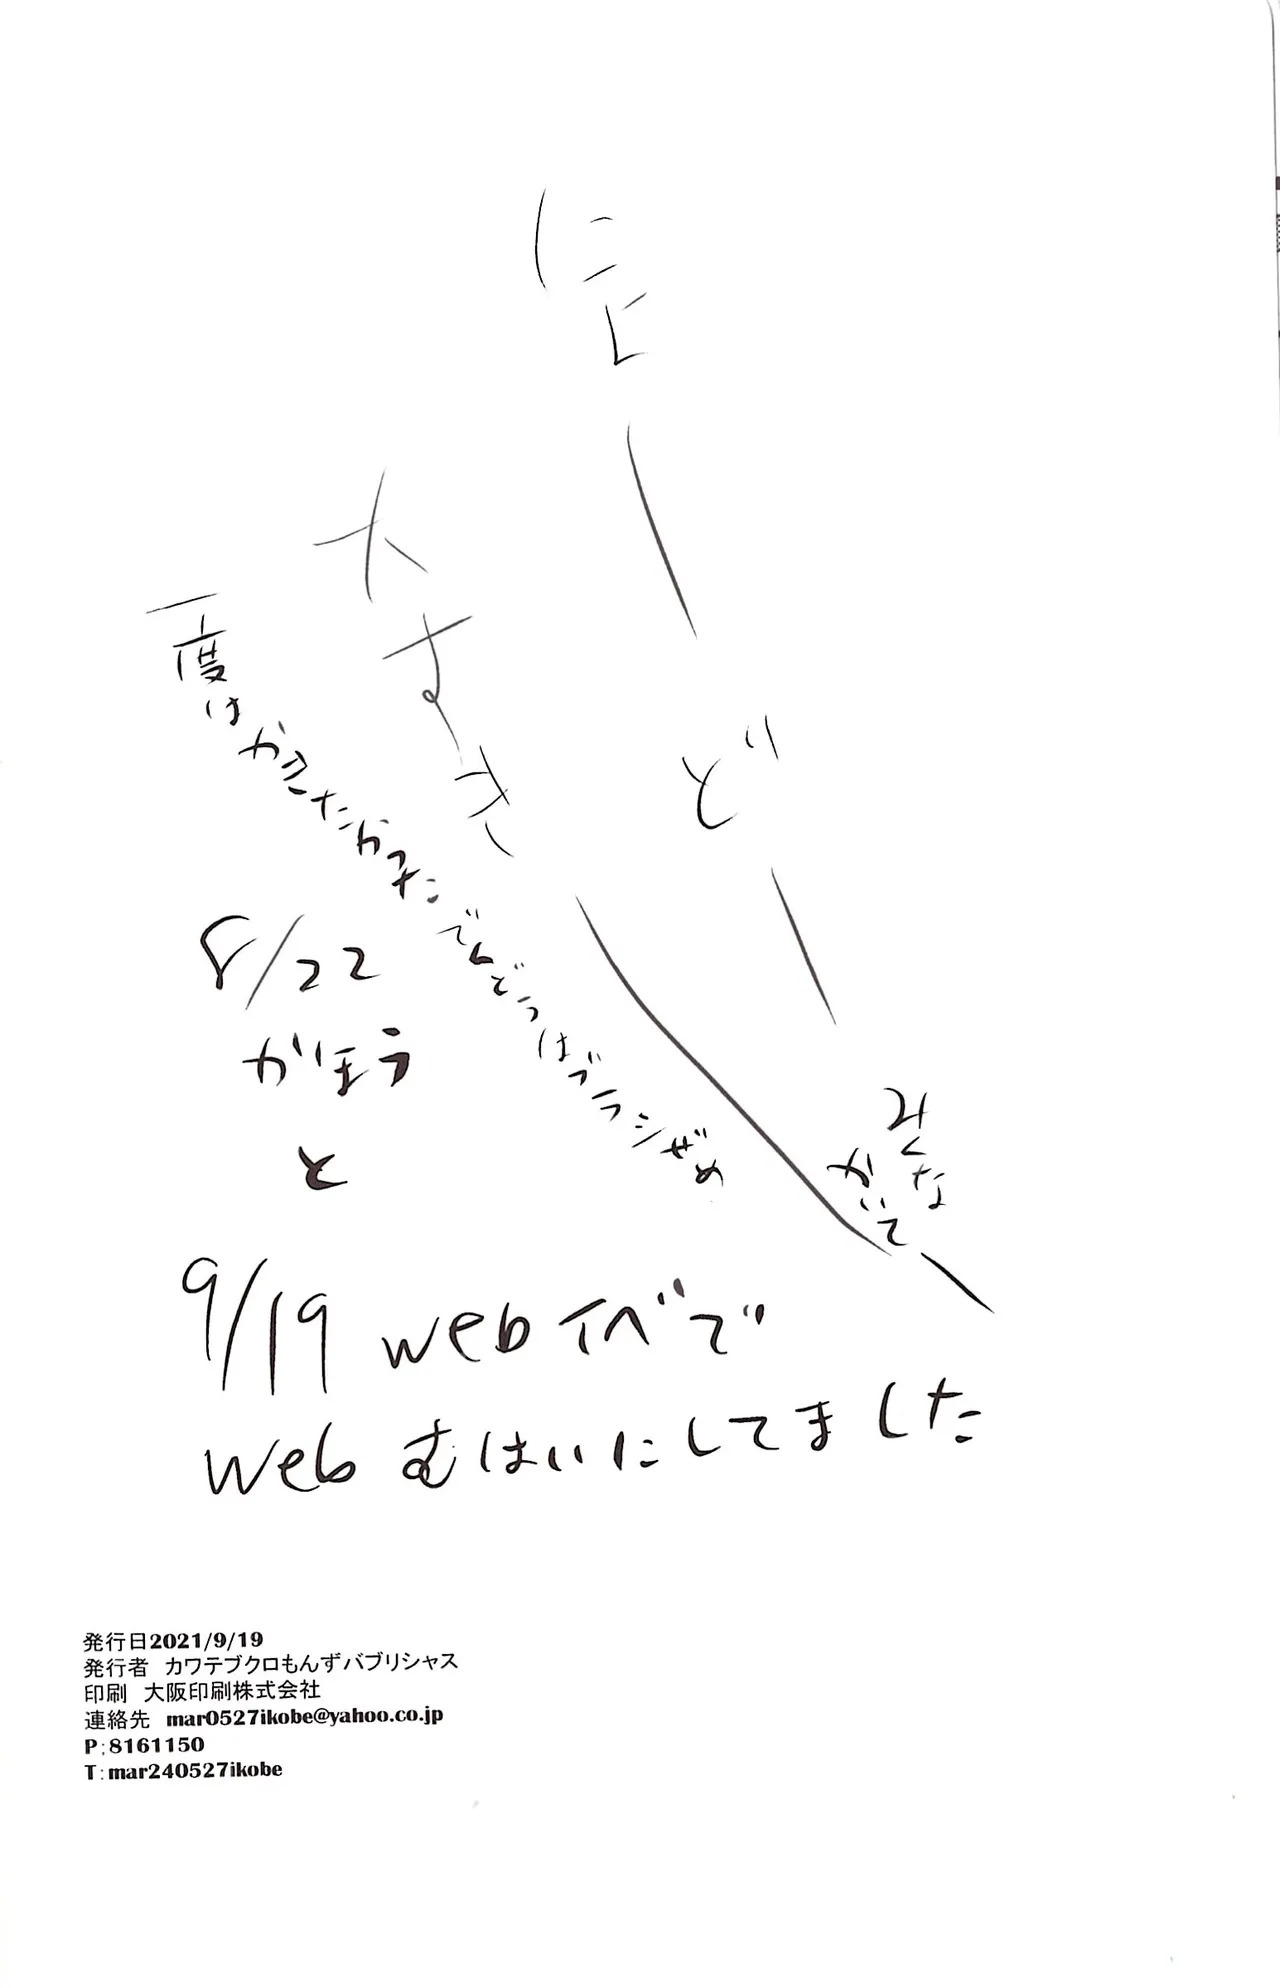 にょーどーみんな
かいてー
大すきー
一度はかきたかった
でんどうはブラシぜめ
8/22
がほう
と
9/19 webイベで
webむはいにしてました
発行日2021/9/19
発行者 カワテブクロもんずパブリシャス
印刷 大阪印刷株式会社
連絡先 mar0527ikobe@yahoo.co.jp
P:8161150
T:mar240527ikobe